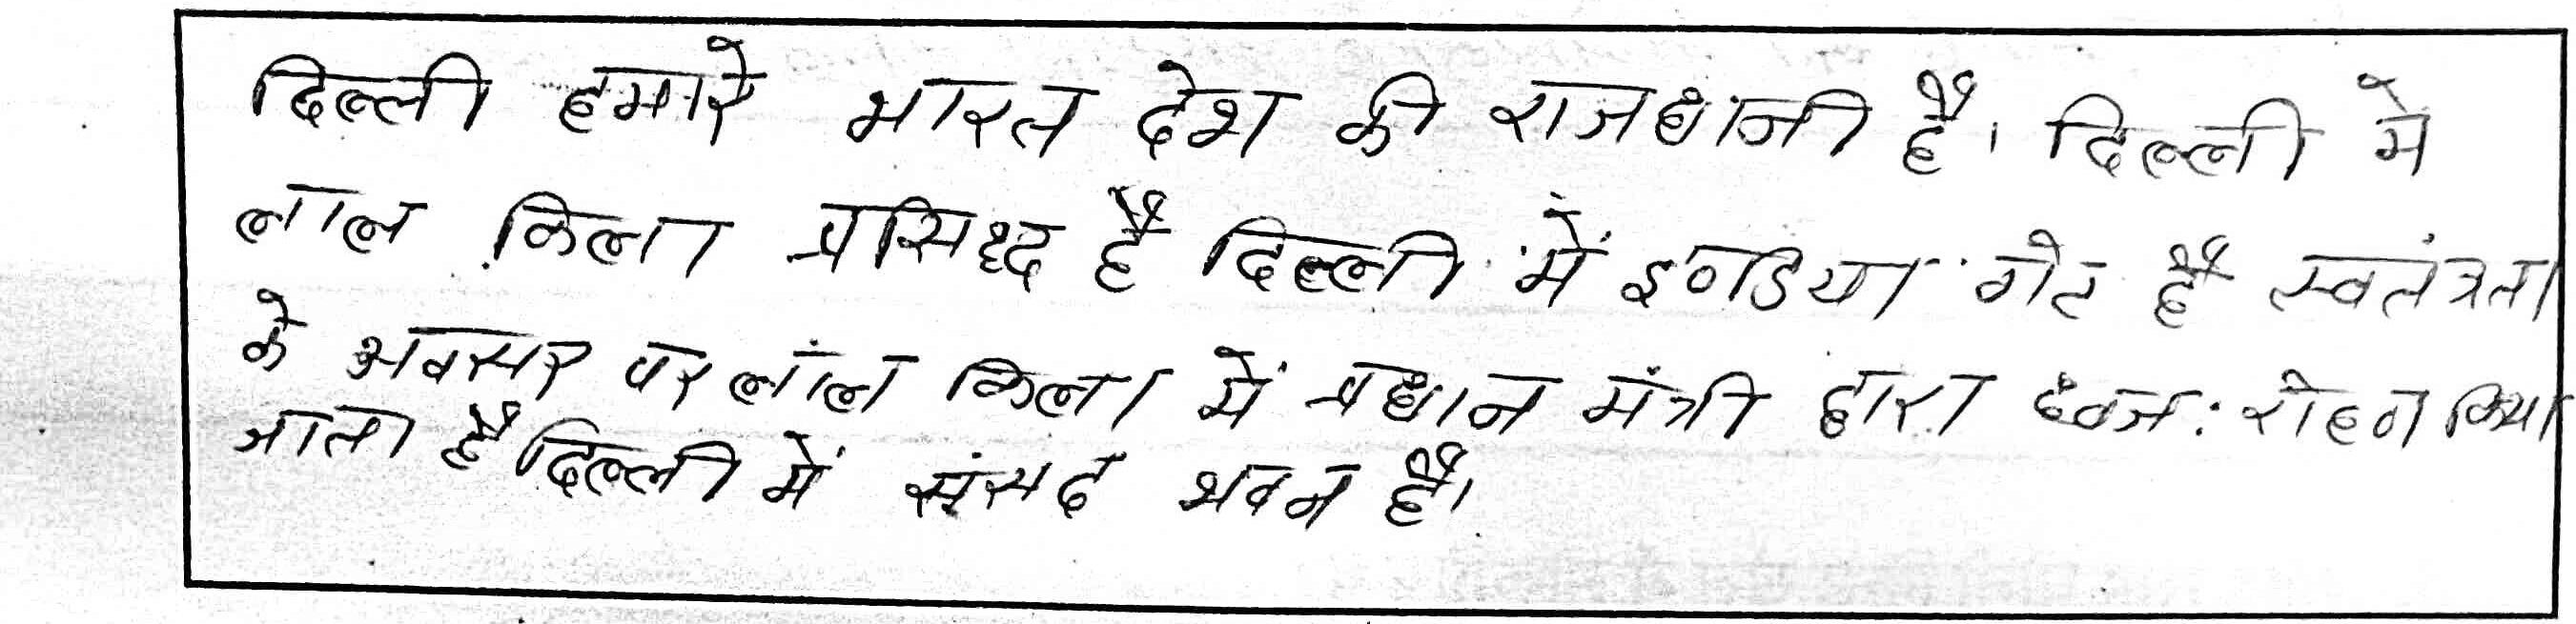 दिल्ली हमारे भारत देश की राजधानी है। दिल्ली मे
लाल किला प्रसिध्द है दिल्ली में इण्डिया गेट है स्वतंत्रता
के अवसर पर लाल किला में प्रधान मंत्री द्वारा ध्वज: रोहण किया
जाता है दिल्ली में संसद भवन है।